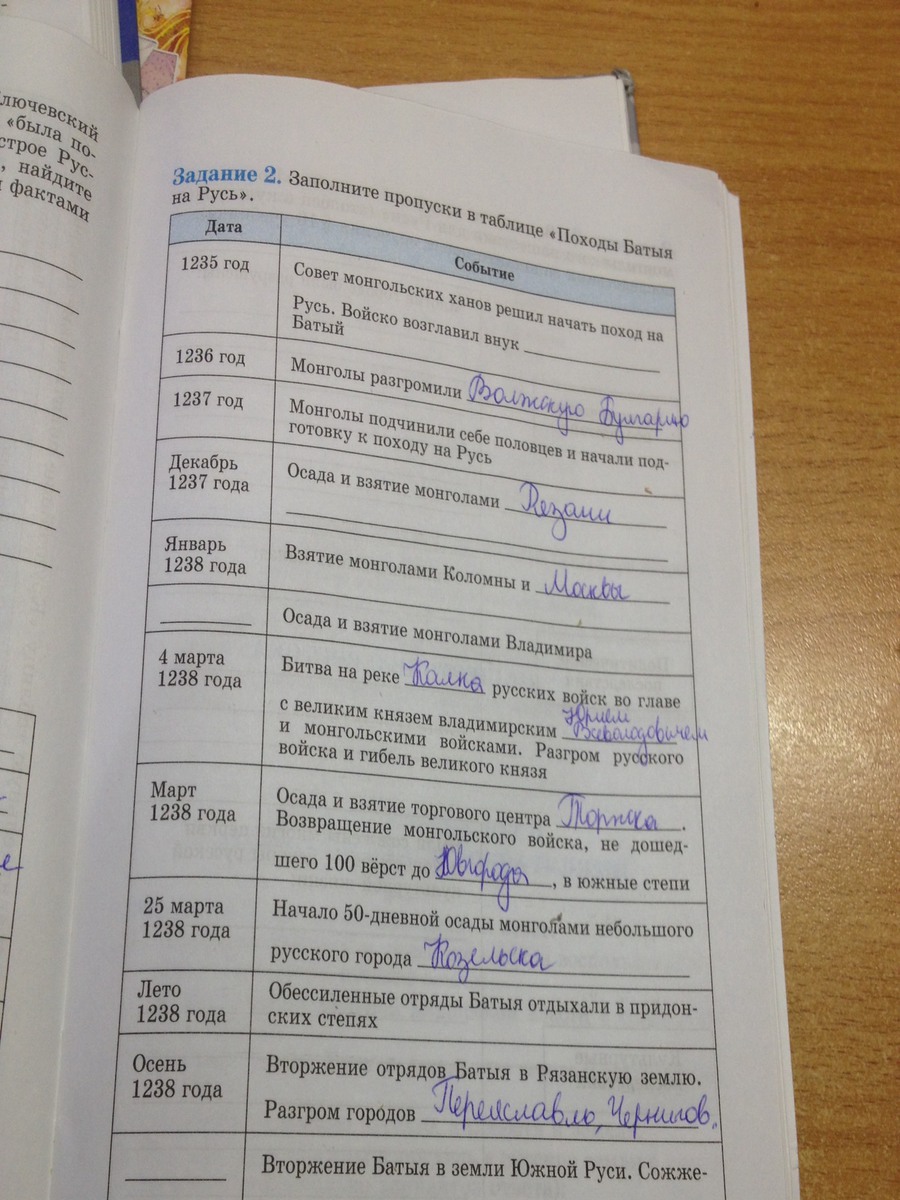 лючевский
«была по-
строе Рус-
, найдите
фактами
Задание 2. Заполните пропуски в таблице «Походы Батыя
на Русь».
Дата
Событие
1235 год
Совет монгольских ханов решил начать поход на
Русь. Войско возглавил внук
Батый
1236 год
Монголы разгромили Волжскую Булгарию
1237 год
Монголы подчинили себе половцев и начали под-
готовку к походу на Русь
Декабрь
1237 года
Осада и взятие монголами Рязани
Январь
1238 года
Взятие монголами Коломны и Москвы
Осада и взятие монголами Владимира
4 марта
1238 года
Битва на реке Калка русских войск во главе
с великим князем владимирским Юрием
Всеволодовичем
и монгольскими войсками. Разгром русского
войска и гибель великого князя
Март
1238 года
Осада и взятие торгового центра Торжска.
Возвращение монгольского войска, не дошед-
шего 100 вёрст до , в южные степи
25 марта
1238 года
Начало 50-дневной осады монголами небольшого
русского города Козельска
Лето
1238 года
Обессиленные отряды Батыя отдыхали в придон-
ских степях
Осень
1238 года
Вторжение отрядов Батыя в Рязанскую землю.
Разгром городов Переяславль, Чернигов.
Вторжение Батыя в земли Южной Руси. Сожже-